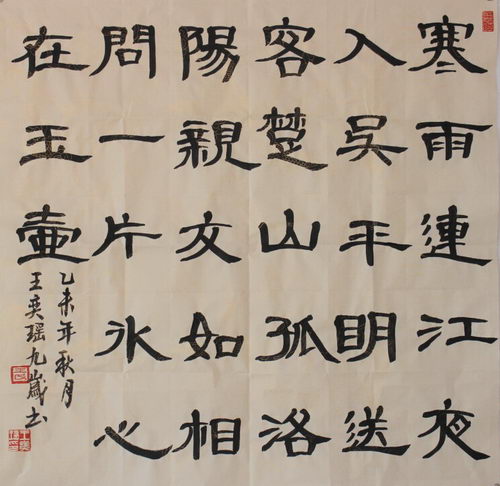 寒雨連江夜
入吳平明送
客楚山孤洛
陽親友如相
問一片冰心
在玉壺
乙未年秋月
王奕瑶九歲书